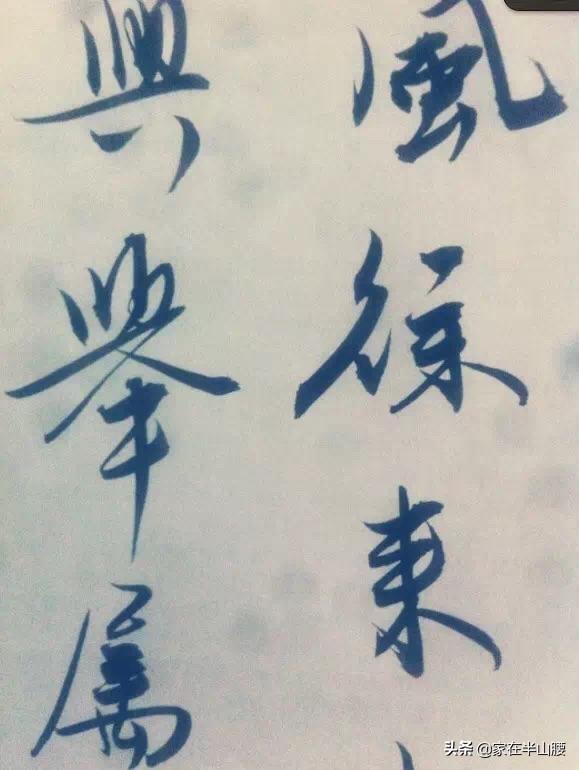 風徐来
興舉属
头条 @家在半山腰